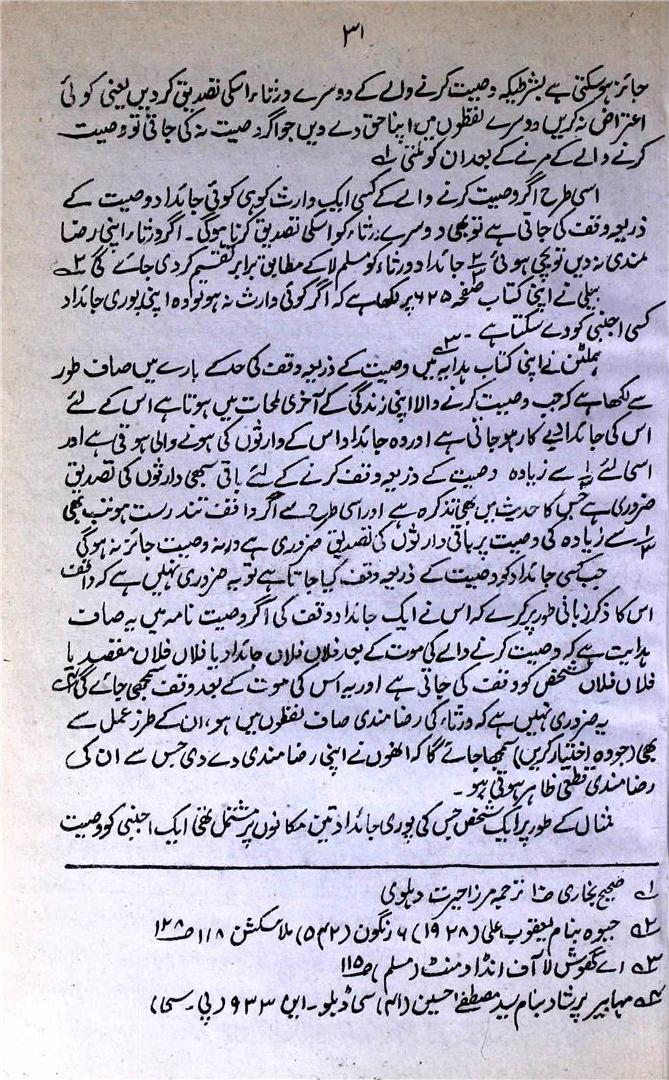 ۳۱
جائز ہوسکتی ہے بشرطیکہ وصیت کرنے والے کے دوسرے ورثاء اسکی تصدیق کردیں یعنی کوئی
اعتراض نہ کریں دوسرے لفظوں میں اپنا حق دے دیں جو اگر وصیت نہ کی جاتی تو وصیت
کرنے والے کے مرنے کے بعد ان کو ملتی ۱ے
اسی طرح اگر وصیت کرنے والے کے کسی ایک وارث کو ہی کوئی جائداد وصیت کے
ذریعہ وقف کی جاتی ہے تو بھی دوسرے ورثاء کو اسکی تصدیق کرنا ہوگی۔ اگر ورثاء اپنی رضا
مندی نہ دیں تو بچی ہوئی ۲/۳ جائداد ورثاء کو مسلم لا کے مطابق برابر تقسیم کردی جائے گی ۲ے
بیلی نے اپنی کتاب صفحہ ۶۲۵ پر لکھا ہے کہ اگر کوئی وارث نہ ہو تو وہ اپنی پوری جائداد
کسی اجنبی کو دے سکتا ہے۔ ۳ے
ہملٹن نے اپنی کتاب ہدایہ میں وصیت کے ذریعہ وقف کی حد کے بارے میں صاف طور
سے لکھا ہے کہ جب وصیت کرنے والا اپنی زندگی کے آخری لمحات میں ہوتا ہے اس کے لئے
اس کی جائداد بے کار ہو جاتی ہے اور وہ جائداد اس کے وارثوں کی ہونے والی ہوتی ہے اور
اسی لئے ۱/۳ سے زیادہ وصیت کے ذریعہ وقف کرنے کے لئے باقی سبھی وارثوں کی تصدیق
ضروری ہے جس کا حدیث میں بھی تذکرہ ہے اور اسی طرح سے اگر واقف تندرست ہو تب بھی
۱/۳ سے زیادہ کی وصیت پر باقی وارثوں کی تصدیق ضروری ہے ورنہ وصیت جائز نہ ہوگی
جب کسی جائداد کو وصیت کے ذریعہ وقف کیا جاتا ہے تو یہ ضروری نہیں ہے کہ واقف
اس کا ذکر زبانی طور پر کرے کہ اس نے ایک جائداد وقف کی اگر وصیت نامہ میں یہ صاف
ہدایت ہے کہ وصیت کرنے والے کی موت کے بعد فلاں فلاں جائداد یا فلاں فلاں مقصد یا
فلاں فلاں شخص کو وقف کی جاتی ہے اور یہ اس کی موت کے بعد وقف سمجھی جائے گی ۴ے
یہ ضروری نہیں ہے کہ ورثاء کی رضامندی صاف لفظوں میں ہو، ان کے طرز عمل سے
بھی (جو وہ اختیار کریں) سمجھا جائے گا کہ انھوں نے اپنی رضامندی دے دی جس سے ان کی
رضامندی قطعی ظاہر ہوتی ہو۔
مثال کے طور پر ایک شخص جس کی پوری جائداد تین مکانوں پر مشتمل تھی ایک اجنبی کو وصیت
۱ے صحیح بخاری ترجمہ مرزا حیرت دہلوی
۲ے جیوہ بنام یعقوب علی (۱۹۲۸) ۶ رنگون (۵۴۲) ملا سکشن ۱۱۸ ص ۱۲۸
۳ے اے گھوش لا آف انڈاومنٹ (مسلم) ص ۱۱۵
۴ے مہابیر پرشاد بنام سید مصطفےٰ حسین (۴۱) سی ڈبلو۔ این ۹۳۳ (پی۔ سی)